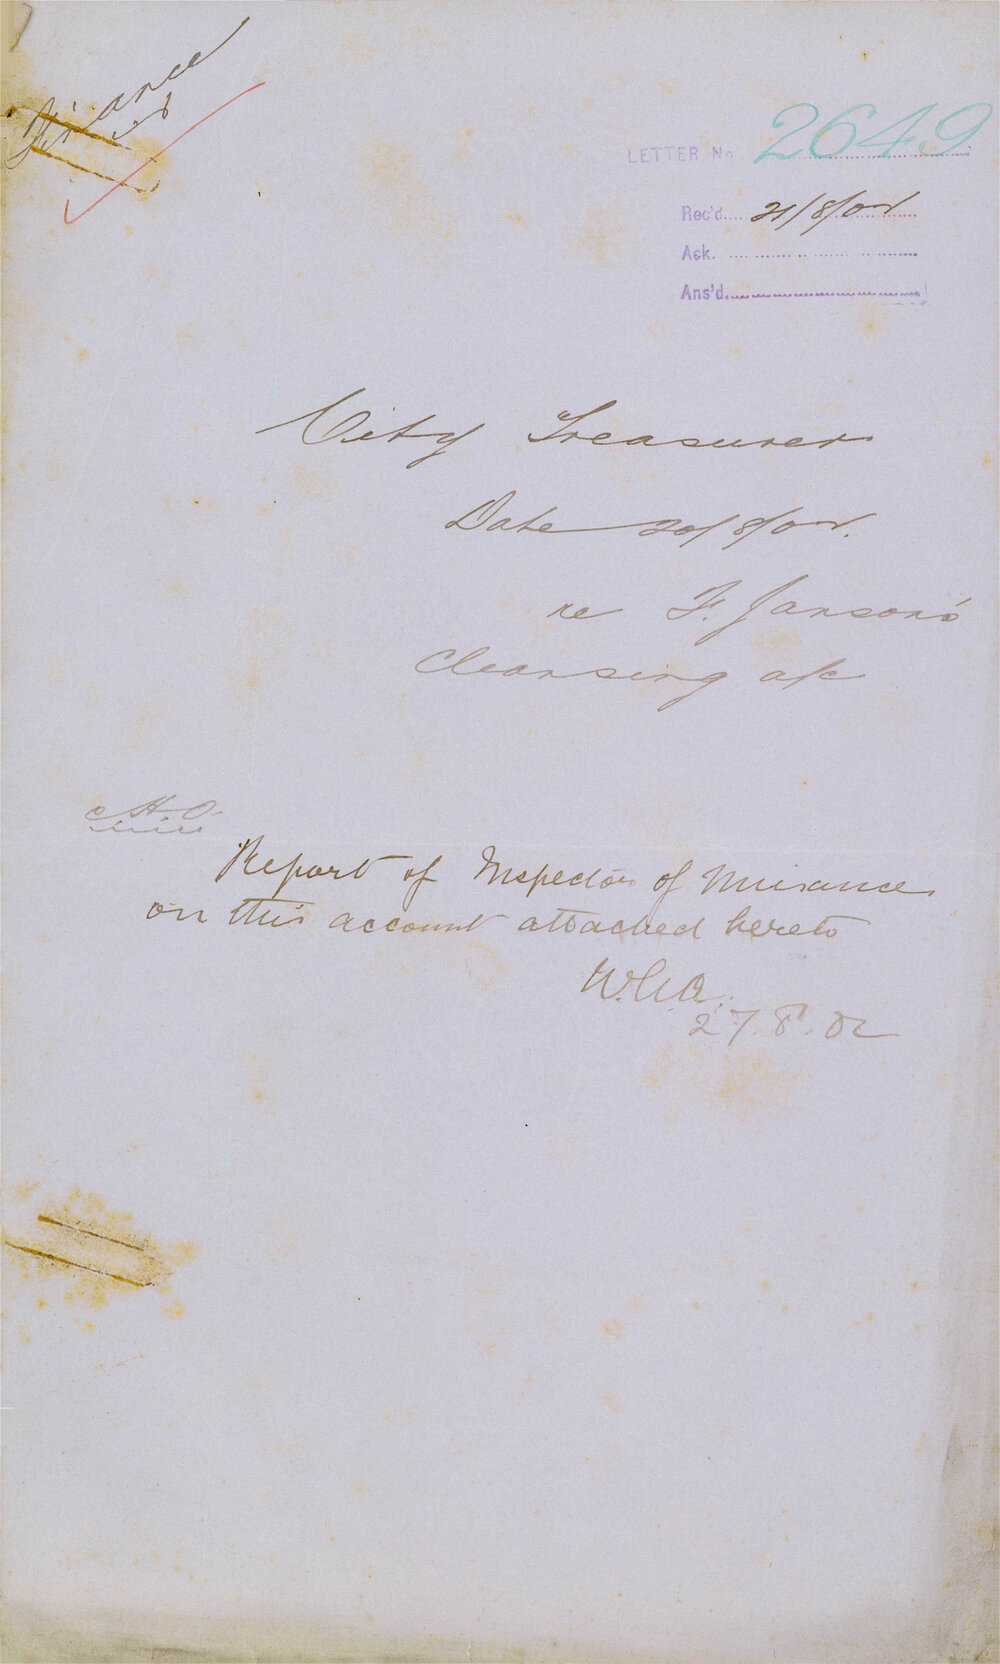 Finance
LETTER No 2649
Rec'd.... 21/8/02
Ack.
Ans'd.
City Treasurer
Date 20/8/02.
re F. Janson's
Cleansing a/c
H.O.
Report of Inspector of Nuisances
on this account attached hereto
27.8.02